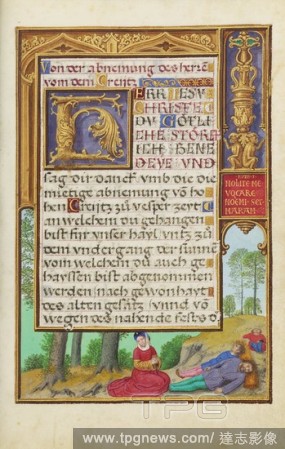 Von der abnemung des hertz
vom dem Creutz
HERR IESV
CHRISTE
DV GÖTLI
CHE STÖRR
ICH BENE
DEYE VND
sag dir danck vmb die die
mietige abnemung võ ho
hen Creutz zu vesper zeyt
an welchem du gehangen
bist fur vnser hayl vntz zu
dem vndergang der sunne
vom welchem du auch ge
hayssen bist abgenomen
werden nach gewonhayt
des alten gesatz vnnd võ
wegen des nahende fests d
NOLITE ME
VOCARE
NOEMI SED
MARAM
TPG
www.tpgnews.com / 達志影像